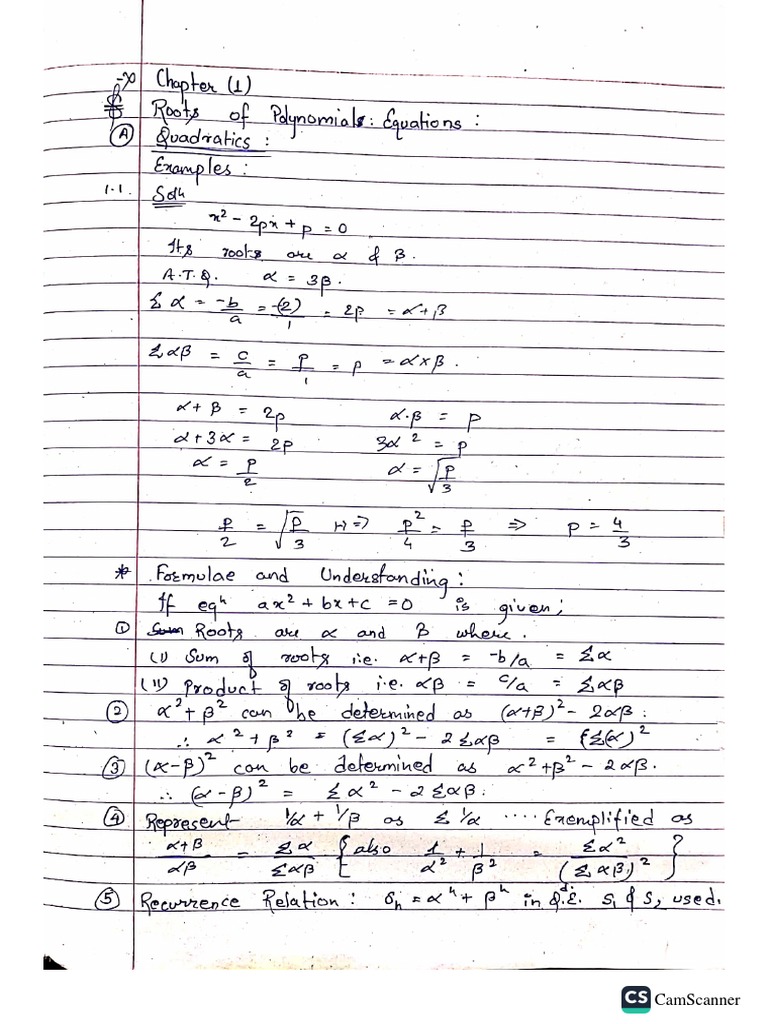 Chapter (1)
Roots of Polynomials: Equations :
(A) Quadratics :
Examples :
1.1. Solⁿ
x² - 2px + p = 0
Its roots are α & β.
A.T.Q. α = 3β.
Σα = -b/a = -(2)/1 = 2p = α+β
Σαβ = c/a = p/1 = p = α×β.
α + β = 2p α·β = p
α + 3α = 2p 3α² = p
α = p/2 α = √(p/3)
p/2 = √(p/3) ⇒ p²/4 = p/3 ⇒ p = 4/3
* Formulae and Understanding :
If eqⁿ ax² + bx + c = 0 is given;
① Roots are α and β where.
(i) Sum of roots i.e. α+β = -b/a = Σα
(ii) Product of roots i.e. αβ = c/a = Σαβ
② α² + β² can be determined as (α+β)² - 2αβ.
∴ α² + β² = (Σα)² - 2Σαβ = (Σ(α)²
③ (α-β)² can be determined as α²+β² - 2αβ.
∴ (α-β)² = Σα² - 2Σαβ.
④ Represent 1/α + 1/β as Σ1/α .... Exemplified as
α+β/αβ = Σα/Σαβ {also 1/α² + 1/β² = Σα²/(Σαβ)²}
⑤ Recurrence Relation : Sₙ = αⁿ + βⁿ in Q.E. S₁ & S₂ used.
CS CamScanner